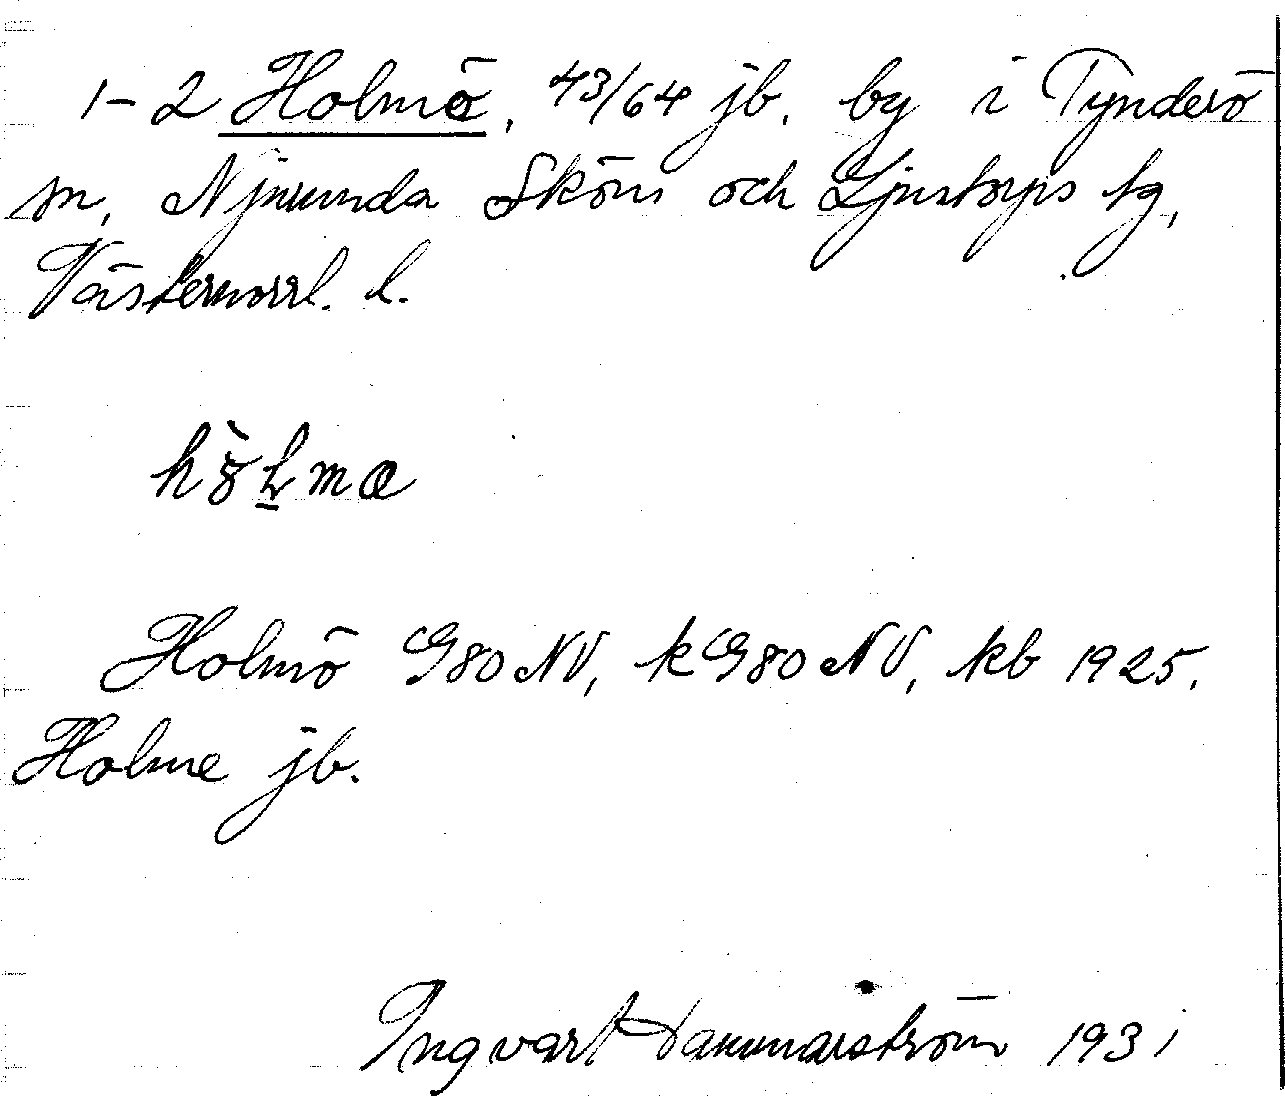 1-2 Holmö, 43/64 jb. by i Tynderö
sn, Njurunda Sköns och Ljustorps tg,
Västernorrl. l.
Holmö G80NV, kG80NV, kb 1925.
Holme jb.
Ingvart Hammarström 1931